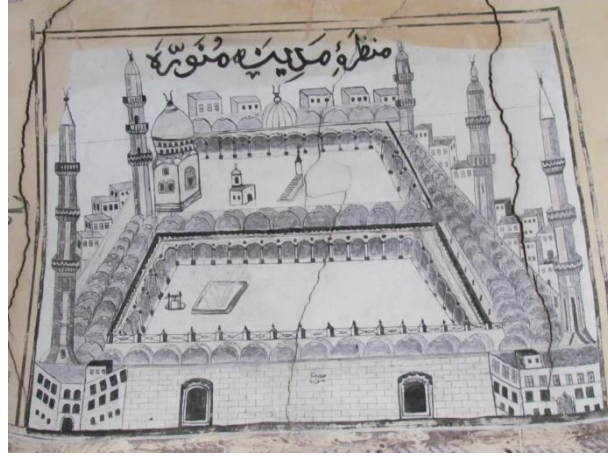 منظرۀ مدینه منوّره